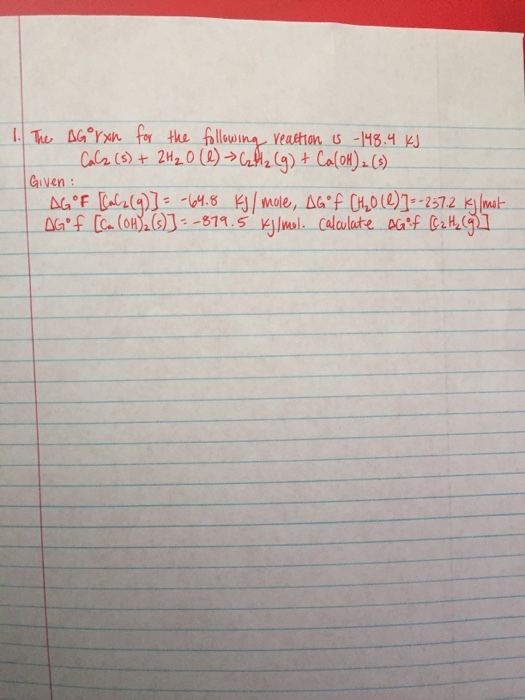 1. The ΔG°rxn for the following reaction is -148.4 KJ
CaC₂ (s) + 2H₂O (l) → C₂H₂ (g) + Ca(OH)₂ (s)
Given :
ΔG°F [CaC₂(g)] = -64.8 KJ/mole, ΔG°f [H₂O(l)] = -237.2 KJ/mol
ΔG°f [Ca(OH)₂(s)] = -879.5 KJ/mol. Calculate ΔG°f [C₂H₂(g)]